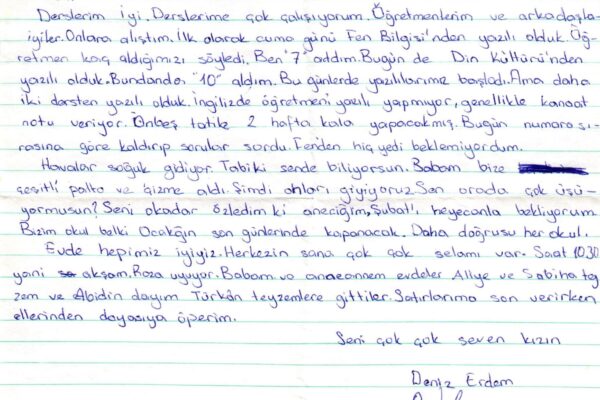 Derslerim iyi. Derslerime çok çalışıyorum. Öğretmenlerim ve arkadaşla
iyiler. Onlara alıştım. İlk olarak cuma günü Fen Bilgisi'nden yazılı olduk. Öğ-
retmen kaç aldığımızı söyledi. Ben "7" aldım. Bugün de Din Kültürü'nden
yazılı olduk. Bundanda "10" aldım. Bu günlerde yazılılarımız başladı. Ama daha
iki dersten yazılı olduk. İngilizde öğretmeni yazılı yapmıyor, genellikle kanaat
notu veriyor. Onbeş tatile 2 hafta kala yapacakmış. Bugün numara sı-
rasına göre kaldırıp sorular sordu. Fenden hiç yedi beklemiyordum.
Havalar soğuk gidiyor. Tabiki sende biliyorsun. Babam bize
çeşitli palto ve çizme aldı. Şimdi onları giyiyoruz. Sen orada çok üşü-
yormusun? Seni okadar özledim ki anneciğim, Şubat'ı heyecanla bekliyorum
Bizim okul belki Ocağın son günlerinde kapanacak. Daha doğrusu her okul.
Evde hepimiz iyiyiz. Herkezin sana çok çok selamı var. Saat 10.30
yani akşam. Rıza uyuyor. Babam ve anneannem evdeler Aliye ve Sabiha tey
zem ve Abidin dayım Türkân teyzemlere gittiler. Satırlarıma son verirken
ellerinden doyasıya öperim.
Seni çok çok seven kızın
Deniz Erdem